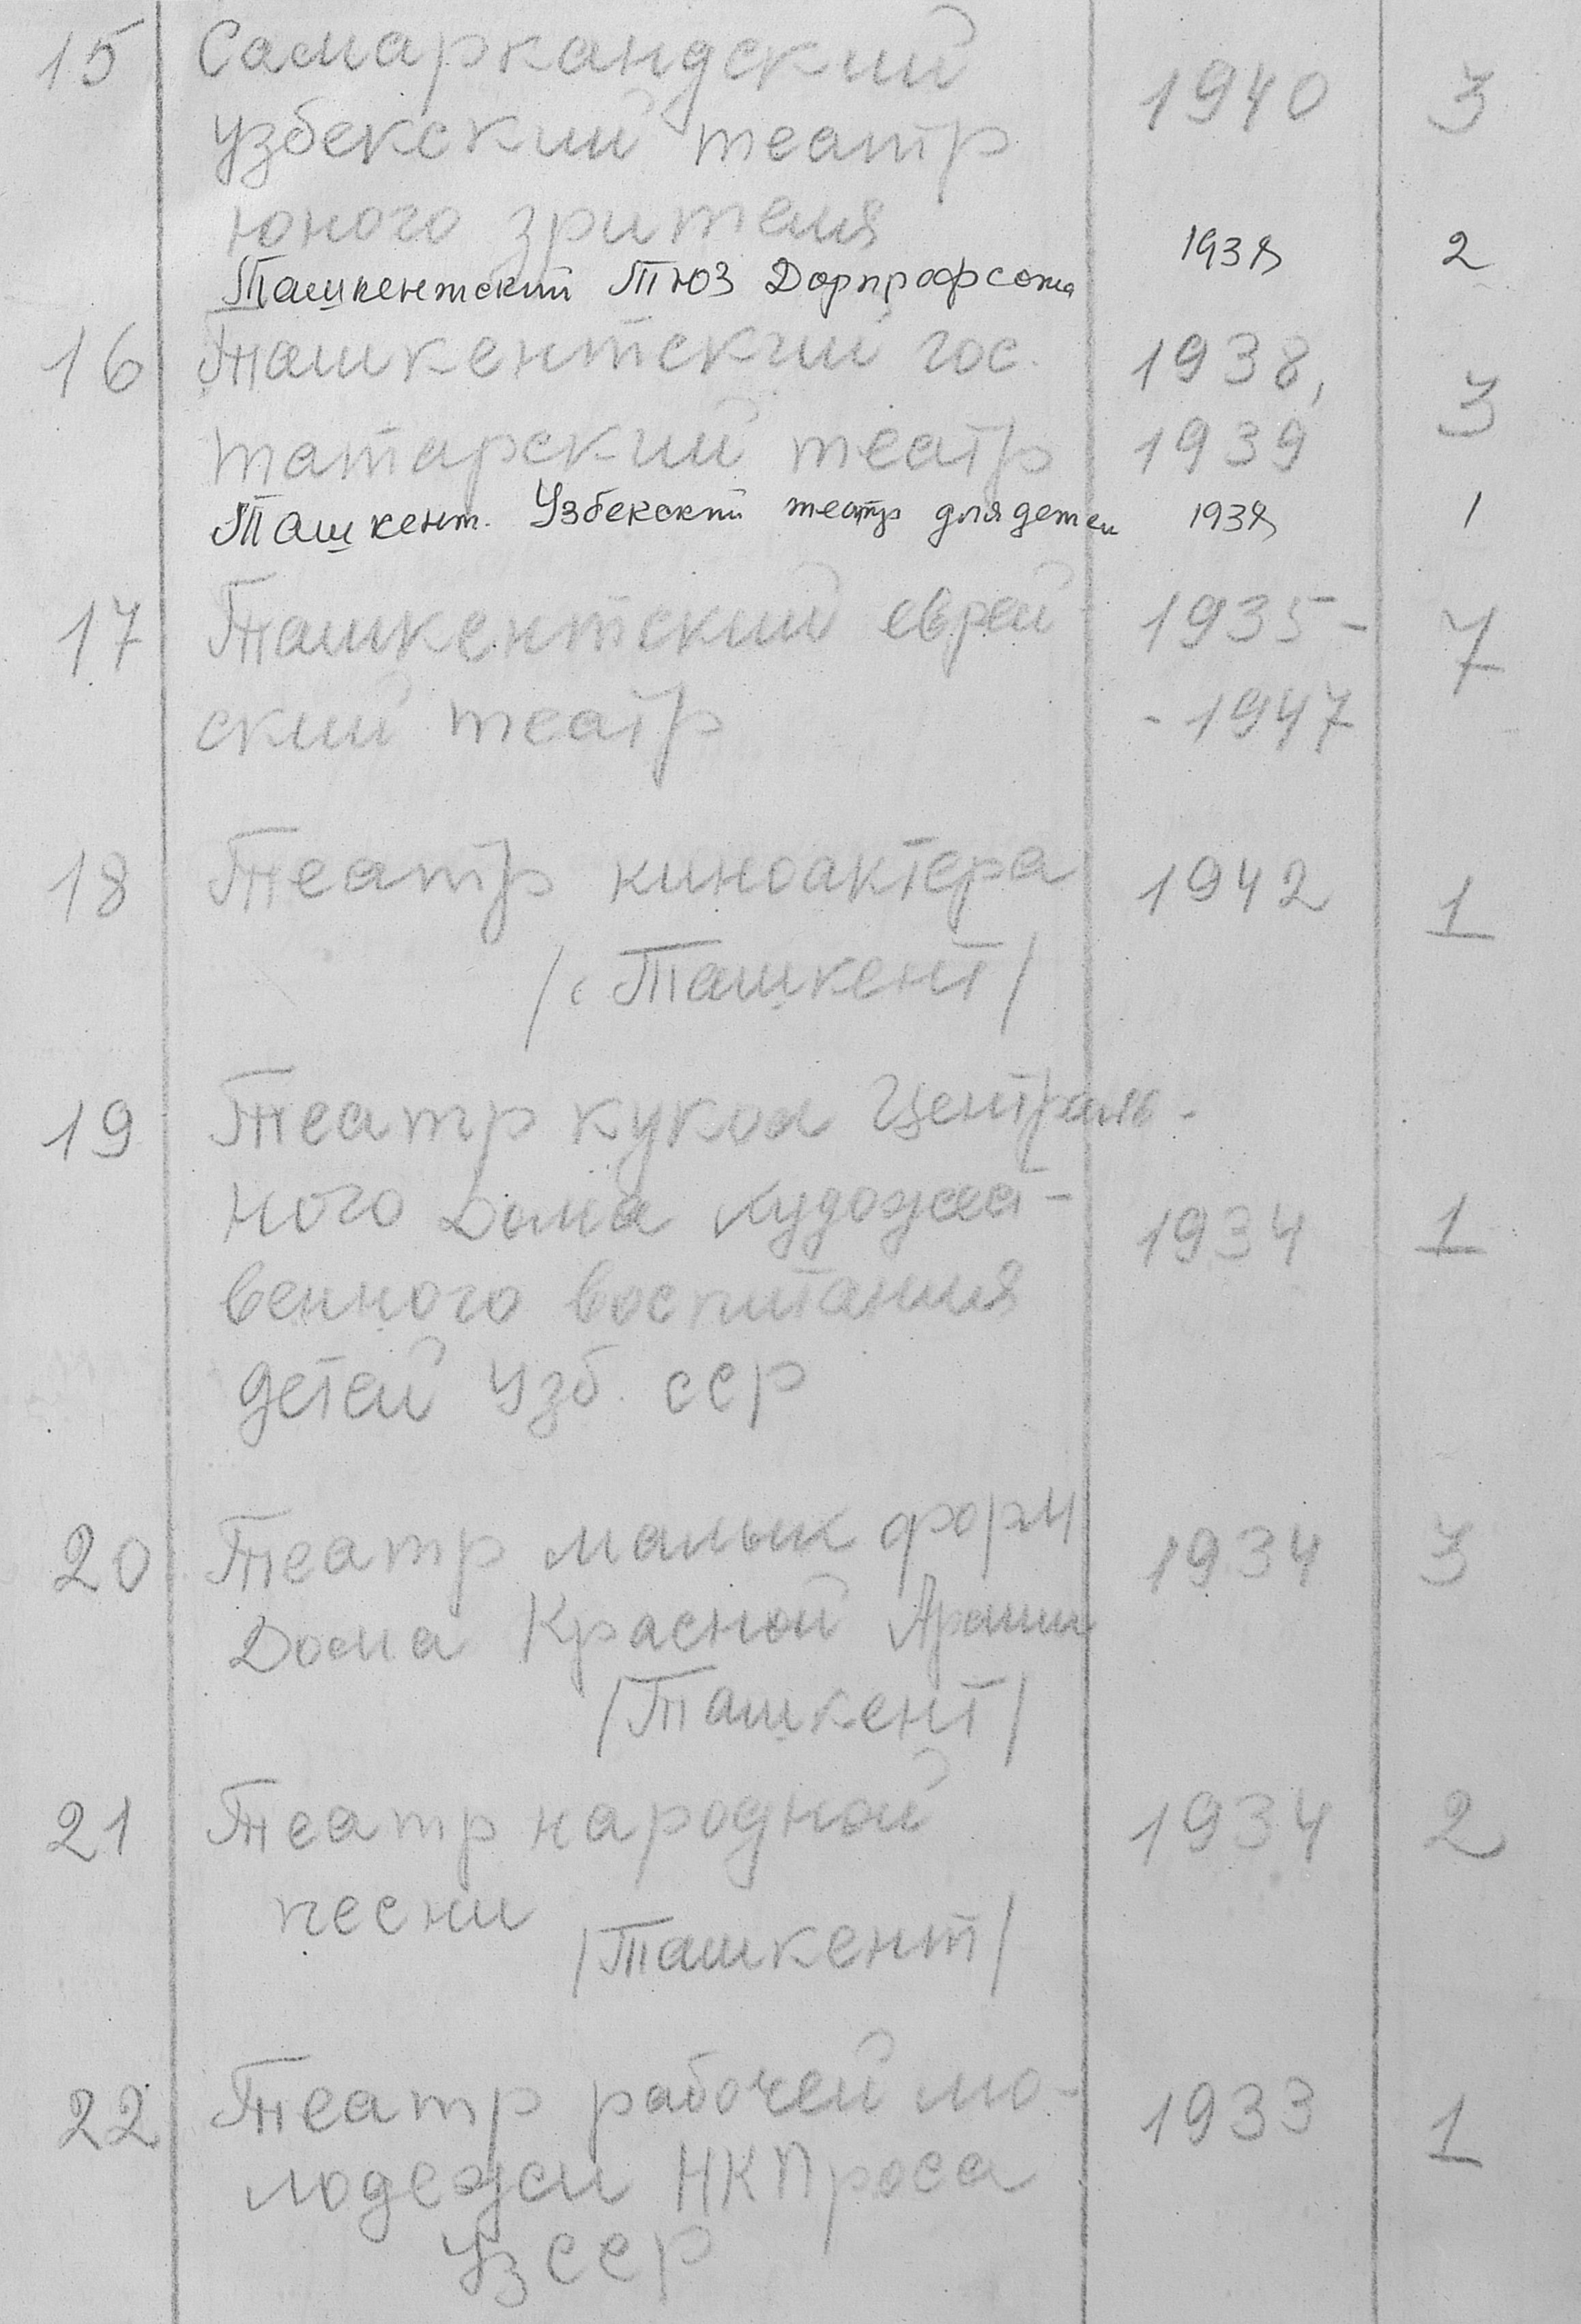 15 Самаркандский
узбекский театр 1940 3
юного зрителя
Ташкентский ТЮЗ Дорпрофсожа 1938 2
16 Ташкентский гос. 1938, 3
татарский театр 1939
Ташкент. Узбекский театр для детей 1938 1
17 Ташкентский еврей 1935- 7
ский театр -1947
18 Театр киноактера 1942 1
/ Ташкент/
19 Театр кукол Централь-
ного Дома художест- 1934 1
венного воспитания
детей Узб. ССР
20 Театр малых форм 1934 3
Дома Красной Армии
/Ташкент/
21 Театр народной 1934 2
песни
/Ташкент/
22 Театр рабочей мо- 1933 1
лодежи НКПроса
УзССР